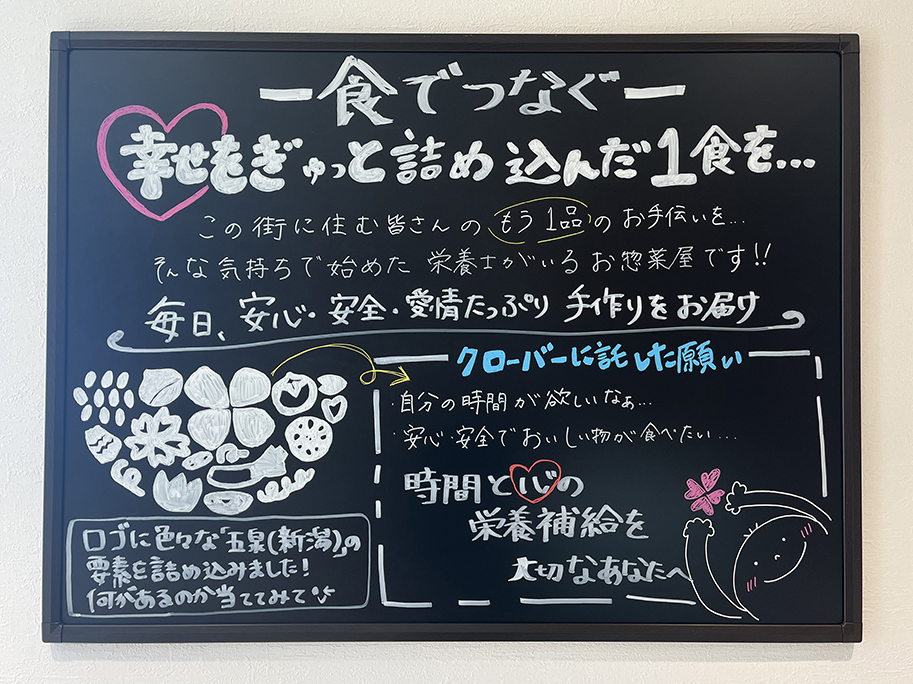 ー食でつなぐー
幸せをぎゅっと詰め込んだ1食を...
この街に住む皆さんのもう1品のお手伝いを...
そんな気持ちで始めた 栄養士がいるお惣菜屋です!!
毎日、安心・安全・愛情たっぷり 手作りをお届け
クローバーに託した願い
・自分の時間が欲しいなぁ...
・安心・安全でおいしい物が食べたい...
時間と心の
栄養補給を
大切なあなたへ
ロゴに色々な「五泉(新潟)」の
要素を詰め込みました!
何があるのか当ててみて♪